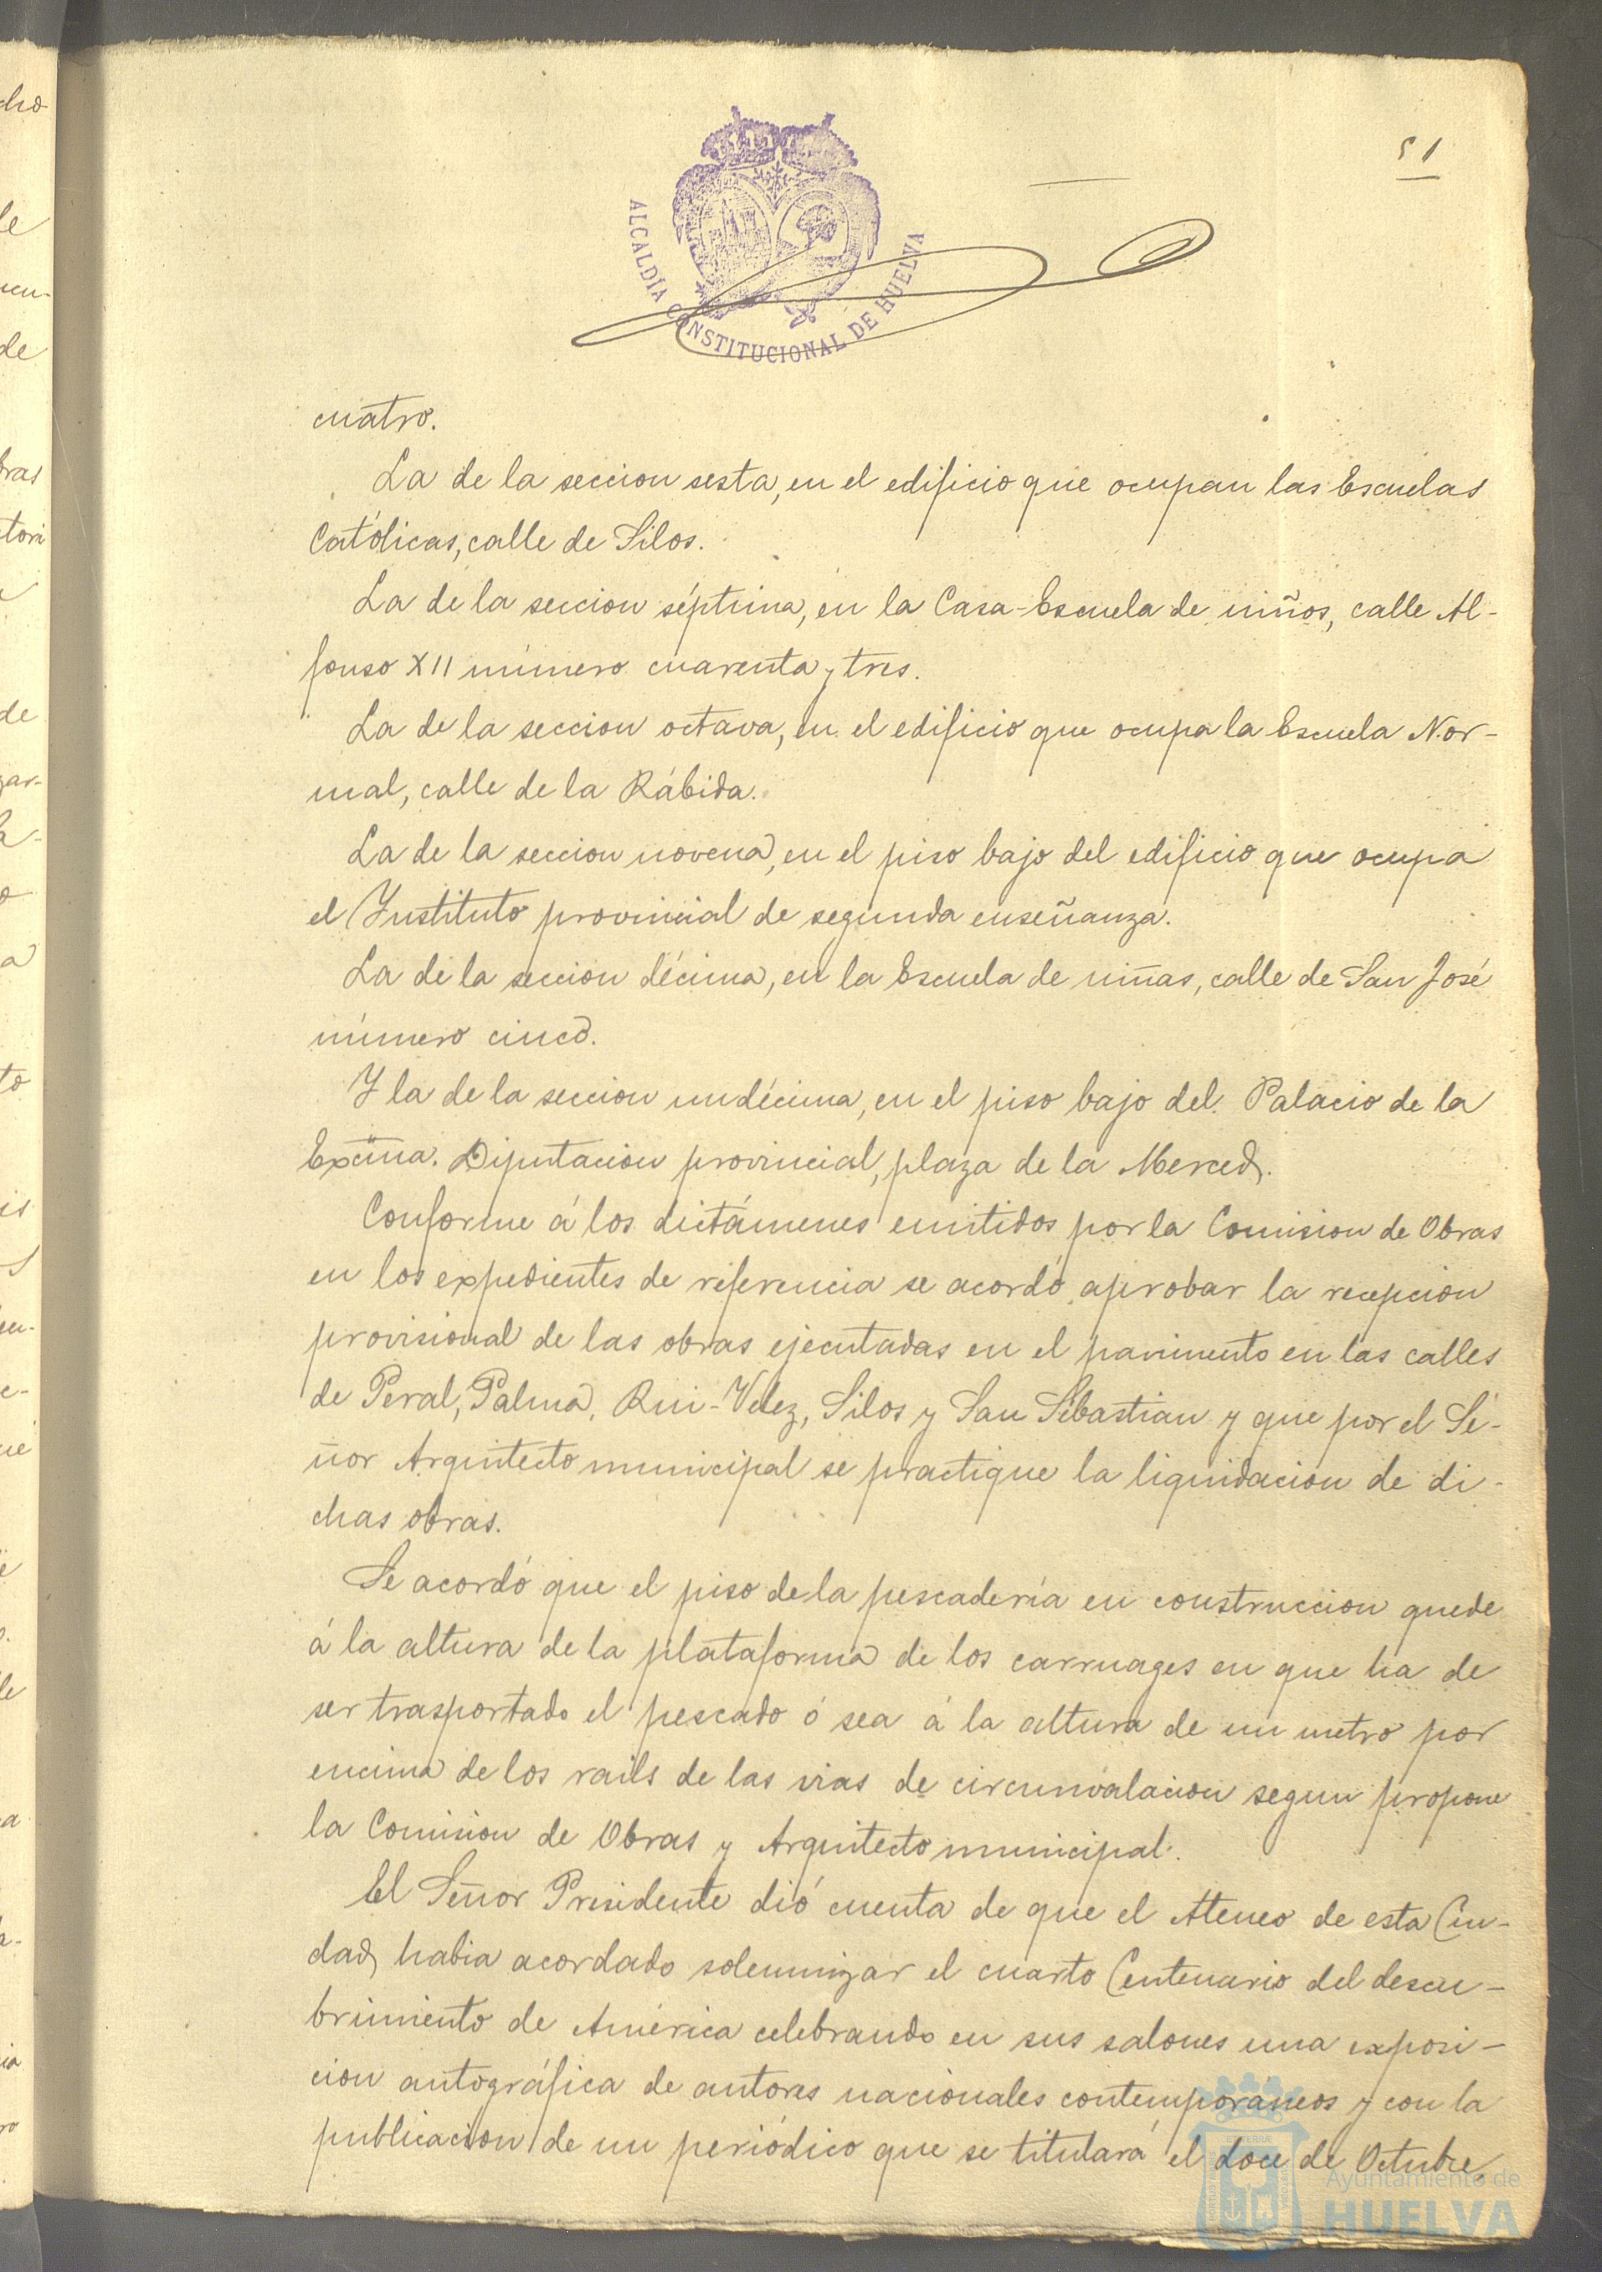 51
ALCALDÍA CONSTITUCIONAL DE HUELVA
cuatro.
La de la seccion sesta, en el edificio que ocupan las Escuelas
Católicas, calle de Silos.
La de la seccion séptima, en la Casa-Escuela de niños, calle Al-
fonso XII número cuarenta y tres.
La de la seccion octava, en el edificio que ocupa la Escuela Nor-
mal, calle de la Rábida.
La de la seccion novena, en el piso bajo del edificio que ocupa
el Instituto provincial de segunda enseñanza.
La de la seccion décima, en la Escuela de niñas, calle de San José
número cinco.
Y la de la seccion undécima, en el piso bajo del Palacio de la
Excma. Diputacion provincial, plaza de la Merced.
Conforme á los dictámenes emitidos por la Comision de Obras
en los expedientes de referencia se acordó aprobar la recepcion
provisional de las obras ejecutadas en el pavimento en las calles
de Peral, Palma, Rui-Velez, Silos y San Sebastian y que por el Se-
ñor Arquitecto municipal se practique la liquidacion de di-
chas obras.
Se acordó que el piso de la pescadería en construccion quede
á la altura de la plataforma de los carruages en que ha de
ser trasportado el pescado ó sea á la altura de un metro por
encima de los rails de las vias de circunvalacion segun propone
la Comision de Obras y Arquitecto municipal.
El Señor Presidente dió cuenta de que el Ateneo de esta Ciu-
dad habia acordado solemnizar el cuarto Centenario del descu-
brimiento de América celebrando en sus salones una exposi-
cion autográfica de autores nacionales contemporaneos y con la
publicacion de un periódico que se titulará el doce de Octubre,
Ayuntamiento de
HUELVA